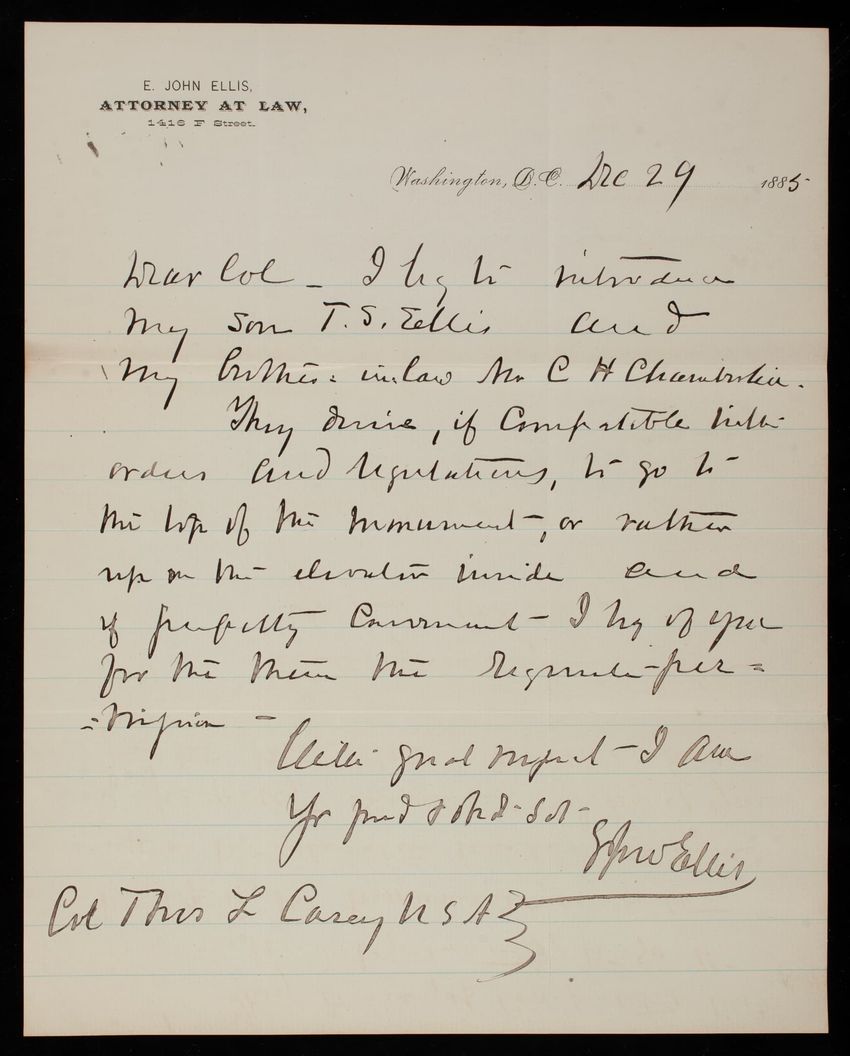 E. JOHN ELLIS,
ATTORNEY AT LAW,
1416 F Street.
Washington, D.C. Dec 29 1885
Dear Col - I beg to introduce
my son T. S. Ellis and
my brother-in-law Mr C H Chamberlin.
They desire, if compatible with
orders and regulations, to go to
the top of the monument, or rather
up on the elevator inside and
if perfectly convenient - I beg of you
for the them the requisite per=
=mission -
With great respect - I am
Yr friend & obed - Svt -
E John Ellis
Col Thos L Casey U S A